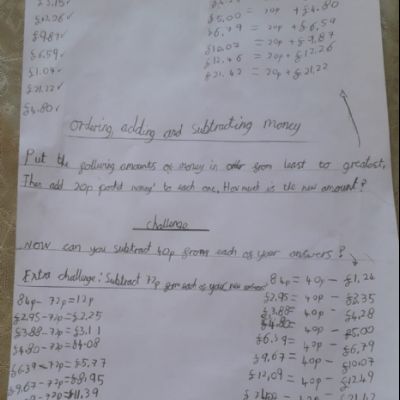 £3.15✓
£12.26✓
£9.87✓
£6.59✓
£1.04✓
£21.22✓
£4.80✓
£5.00 = 20p + £4.80
£6.79 = 20p + £6.59
£10.07 = 20p + £9.87
£12.46 = 20p + £12.26
£21.42 = 20p + £21.22
Ordering, adding and subtracting money
Put the following amounts of money in order from least to greatest,
Then add 20p 'pocket money' to each one. How much is the new amount?
Challenge
NOW can you subtract 40p from each of your answers?
Extra challenge: Subtract 72p from each of your new
84p - 72p = 12p
£2.95 - 72p = £2.25
£3.88 - 72p = £3.11
£4.80 - 72p = £4.08
£6.39 - 72p = £5.77
£9.67 - 72p = £8.95
84p = 40p - £1.24
£2.95 = 40p - £3.35
£3.88 = 40p - £4.28
£4.80 = 40p - £5.00
£6.39 = 40p - £6.79
£9.67 = 40p - £10.07
£12.09 = 40p - £12.49
40p - £21.42